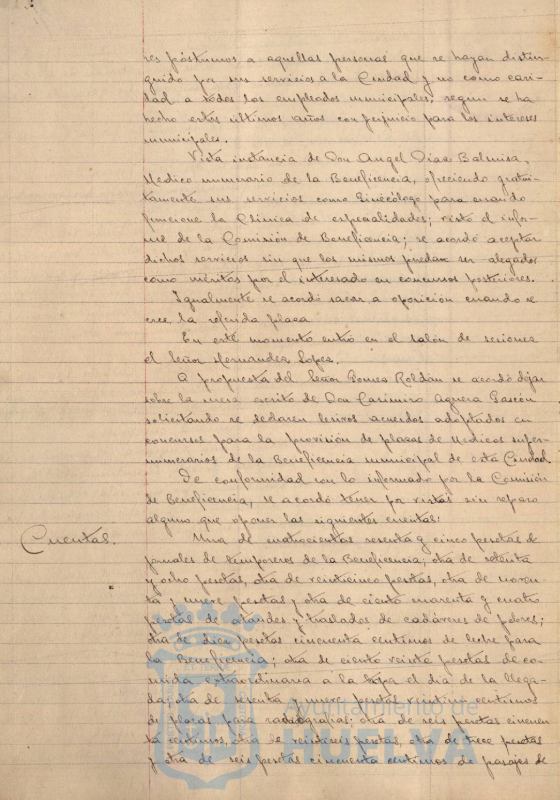 res póstumos a aquellas personas que se hayan distin-
guido por sus servicios a la Ciudad y no como cari-
dad a todos los empleados municipales; segun se ha
hecho estos ultimos años con perjuicio para los intereses
municipales.
Vista instancia de Don Angel Diaz Balmisa,
Medico numerario de la Beneficencia, ofreciendo gratui-
tamente sus servicios como Ginecólogo para cuando
funcione la Clinica de especialidades; visto el infor-
me de la Comisión de Beneficencia; se acordó aceptar
dichos servicios sin que los mismos puedan ser alegados
como méritos por el interesado en concursos posteriores.
Igualmente se acordó sacar a oposición cuando se
cree la referida plaza.
En este momento entró en el salón de sesiones
el Señor Hernandez Lopez.
A propuesta del Señor Pomes Roldán se acordó dejar
sobre la mesa escrito de Don Casimiro Aguera Gascón
solicitando se declaren lesivos acuerdos adoptados en
concursos para la provisión de plazas de Medicos super-
numerarios de la Beneficencia municipal de esta Ciudad
De conformidad con lo informado por la Comisión
de Beneficencia, se acordó tener por vistas sin reparo
alguno que oponer las siguientes cuentas:
Cuentas. Una de cuatrocientas sesenta y cinco pesetas de
jornales de temporeros de la Beneficencia; otra de setenta
y ocho pesetas, otra de veinticinco pesetas, otra de noven-
ta y nueve pesetas y otra de ciento cuarenta y cuatro
pesetas de ataudes y traslados de cadáveres de pobres;
otra de diez pesetas cincuenta centimos de leche para
la Beneficencia; otra de ciento veinte pesetas de co-
mida extraordinaria a la tropa el dia de la llega-
da; otra de sesenta y nueve pesetas veintiun centimos
de placas para radiografias; otra de seis pesetas cincuen-
ta centimos, otra de veintiseis pesetas, otra de trece pesetas
y otra de seis pesetas cincuenta centimos de pasajes de
Ayuntamiento de
HUELVA